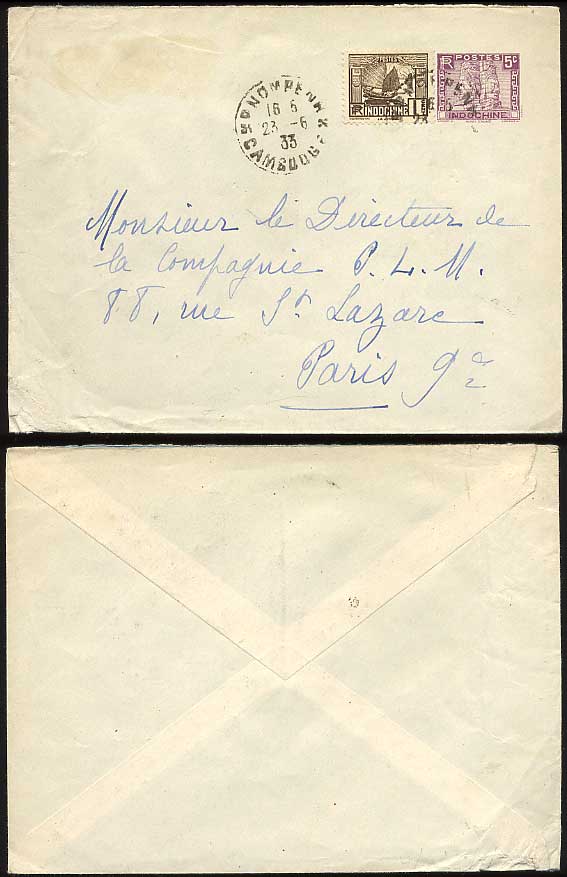 PNOMPENH
16 6
23 -6
33
CAMBODGE
POSTES
RF INDOCHINE
RF POSTES 5c
INDOCHINE
Monsieur le Directeur de
la Compagnie P. L. M.
88, rue St Lazare
Paris 9e